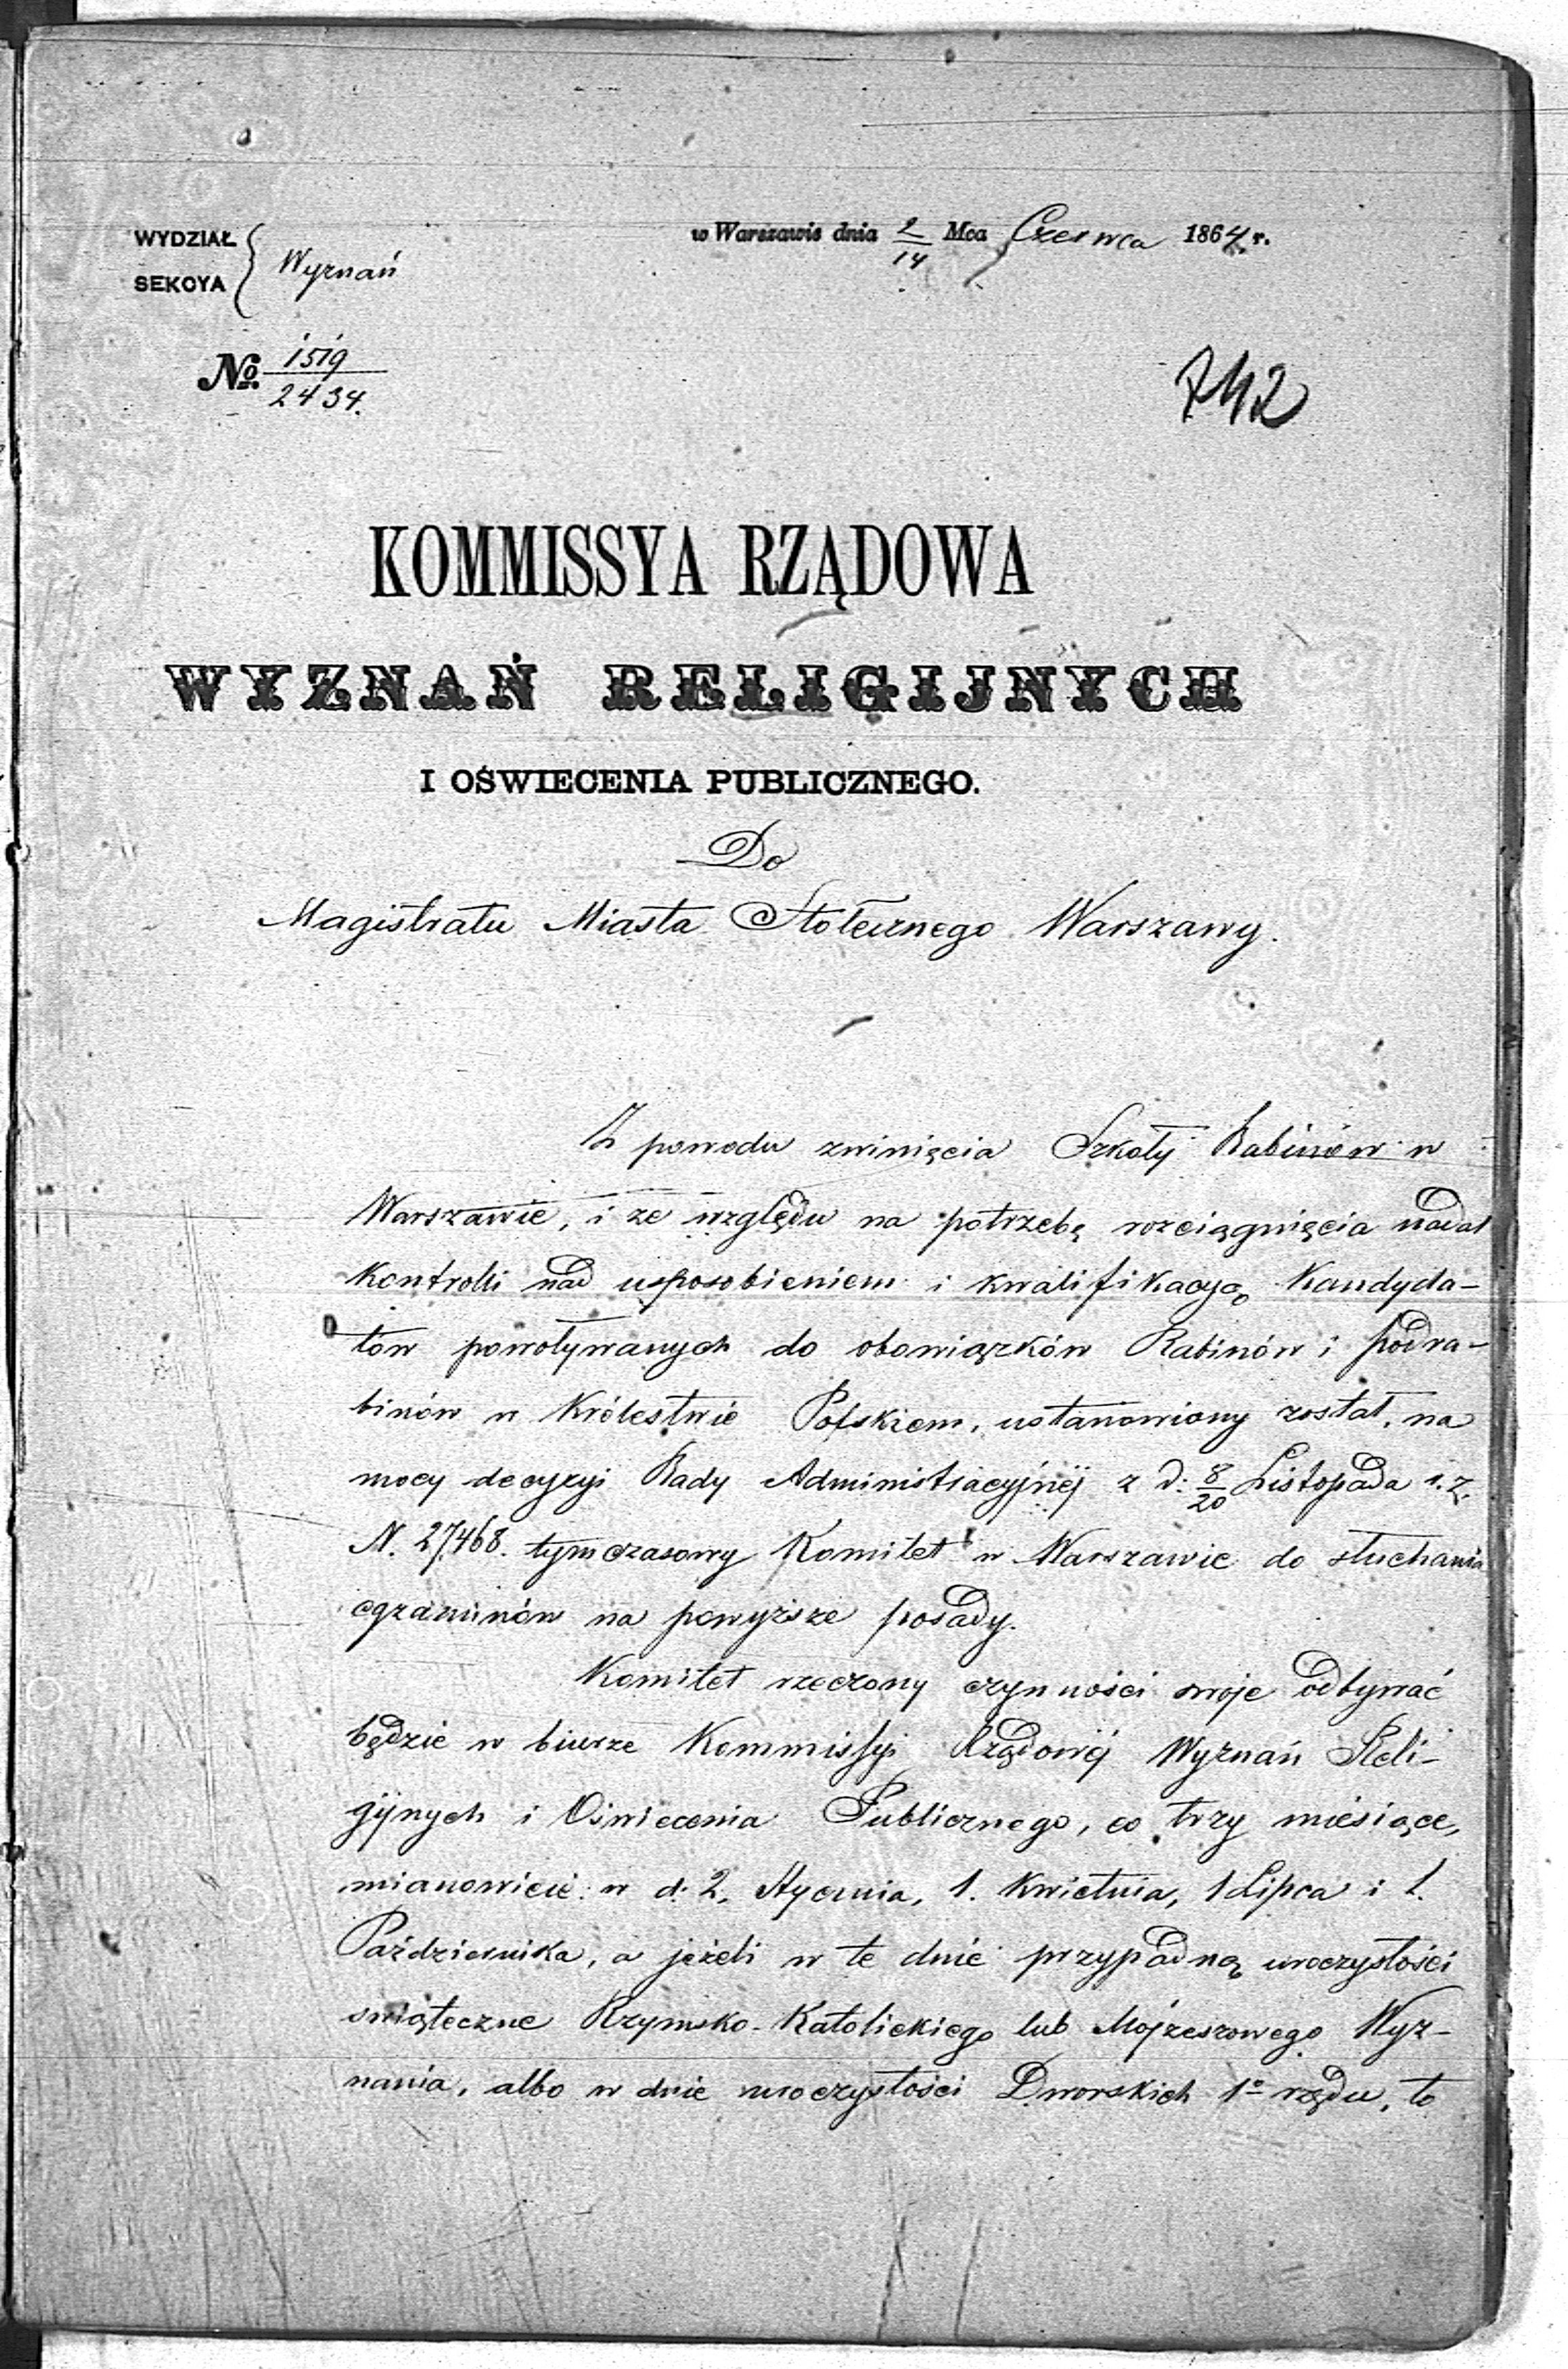 WYDZIAŁ
SEKCYA
Wyznań
w Warszawie dnia 2/14 Mca Czerwca 1864 r.
No. 1519/2434.
742
KOMMISSYA RZĄDOWA
WYZNAŃ RELIGIJNYCH
I OŚWIECENIA PUBLICZNEGO.
Do
Magistratu Miasta Stołecznego Warszawy.
Z powodu zwinięcia Szkoły Rabinów w
Warszawie, i ze względu na potrzebę rozciągnięcia nadal
kontrolli nad usposobieniem i kwalifikacyą Kandyda-
tów powoływanych do obowiązków Rabinów i podra-
binów w Królestwie Polskiem, ustanowiony został, na
mocy decyzyi Rady Administracyjnéj z d: 8/20 Listopada r. z.
N. 27,468. tymczasowy Komitet w Warszawie do słuchania
egzaminów na powyższe posady.
Komitet rzeczony czynności swoje odbywać
będzie w biurze Kommissyi Rządowéj Wyznań Reli-
gijnych i Oświecenia Publicznego, co trzy miesiące,
mianowicie: w d: 2, Stycznia, 1. Kwietnia, 1 Lipca i 1.
Października, a jeżeli w te dnie przypadną uroczystości
świąteczne Rzymsko-Katolickiego lub Mojżeszowego Wyz-
nania, albo w dnie uroczystości Dworskich 1o rzędu, to